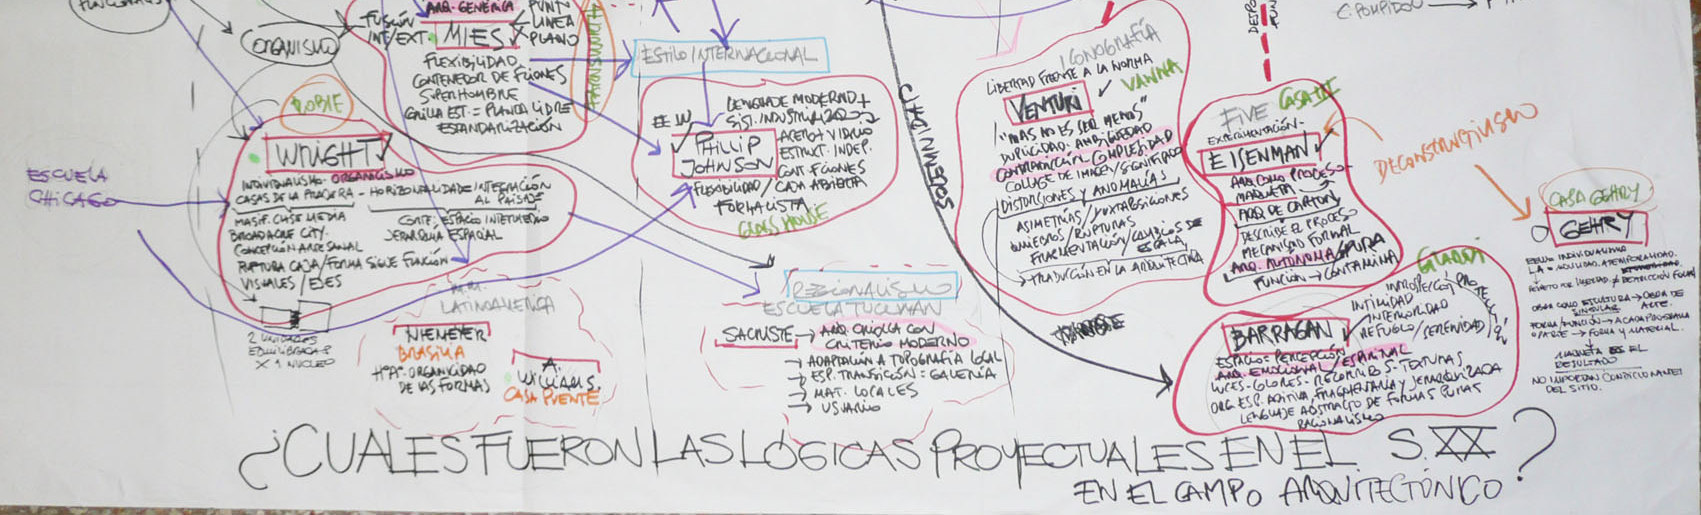 ORGANISMO
FUSIÓN
INT/EXT.
ARQ. GENÉRICA
MIES
PUNTO
LINEA
PLANO
FLEXIBILIDAD
CONTENEDOR DE FCIONES
SUPERHOMBRE
GRILLA EST. = PLANTA LIBRE
ESTANDARIZACIÓN
FARNSWORTH
ESTILO INTERNACIONAL
ROBIE
WRIGHT
INDIVIDUALISMO - ORGANICISMO
CASAS DE LA PRADERA - HORIZONTALIDAD = INTEGRACIÓN
AL PAISAJE
MASIF. CLASE MEDIA
BROADACRE CITY.
CONCEPCIÓN ARTESANAL
RUPTURA CAJA/FORMA SIGUE FUNCIÓN
VISUALES / EJES
ESPACIO INTERMEDIO
JERARQUÍA ESPACIAL
ESCUELA
CHICAGO
2 UNIDADES
EQUILIBRADAS
X 1 NUCLEO
EE UU
PHILLIP
JOHNSON
LENGUAJE MODERNO +
SIST. INDUSTRIALIZADO
ACERO + VIDRIO
ESTRUCT. INDEP.
CONT. FCIONES
FLEXIBILIDAD / CAJA ABIERTA
FORMALISTA
GLASS HOUSE
LATINOAMERICA
NIEMEYER
BRASILIA
HºAº - ORGANICIDAD
DE LAS FORMAS
A.
WILLIAMS.
CASA PUENTE
REGIONALISMO
ESCUELA TUCUMAN
SACRISTE
ARQ. CRIOLLA CON
CRITERIO MODERNO
ADAPTACIÓN A TOPOGRAFÍA LOCAL
ESP. TRANSICIÓN = GALERÍA
MAT. LOCALES
USUARIO
ICONOGRAFÍA
LIBERTAD FRENTE A LA NORMA
VENTURI
VANNA
"MAS NO ES SER MENOS"
DUPLICIDAD - AMBIGÜEDAD
CONTRADICCIÓN COMPLEJIDAD
COLLAGE DE IMAGEN/SIGNIFICADO
DISTORSIONES Y ANOMALÍAS
ASIMETRIAS/YUXTAPOSICIONES
QUIEBROS/RUPTURAS
FRAGMENTACIÓN/CAMBIOS DE
ESCALA
TRADICIÓN EN LA ARQUITECTURA
C. POMPIDOU
FIVE
CASA III
EXPERIMENTACIÓN -
EISENMAN
ARQ. COMO PROCESO -
MAQUETA
ARQ. DE CARTÓN
DESCRIBE EL PROCESO
MECANISMO FORMAL
ARQ. AUTONOMA/PURA
FUNCIÓN → CONTAMINA
DECONSTRUCTIVISMO
CASA GEHRY
GEHRY
OBRA COMO ESCULTURA → OBRA DE
SINGULAR ARTE.
FORMA/FUNCIÓN → A CADA PROGRAMA
O PARTE → FORMA Y MATERIAL.
MAQUETA ES EL
RESULTADO
NO IMPORTAN CONDICIONANTES
DEL SITIO.
GILARDI
INTROSPECCIÓN
INTIMIDAD
INTERIORIDAD
REFUGIO / SERENIDAD
BARRAGAN
ESPACIO = PERCEPCIÓN
ARQ. EMOCIONAL / ESPIRITUAL
LUCES - COLORES - RECORRIDOS - TEXTURAS
ORG. ESP. ADITIVA, FRAGMENTARIA Y JERARQUIZADA
LENGUAJE ABSTRACTO DE FORMAS PURAS
RACIONALISMO
¿CUALES FUERON LAS LÓGICAS PROYECTUALES EN EL S. XX
EN EL CAMPO ARQUITECTÓNICO?